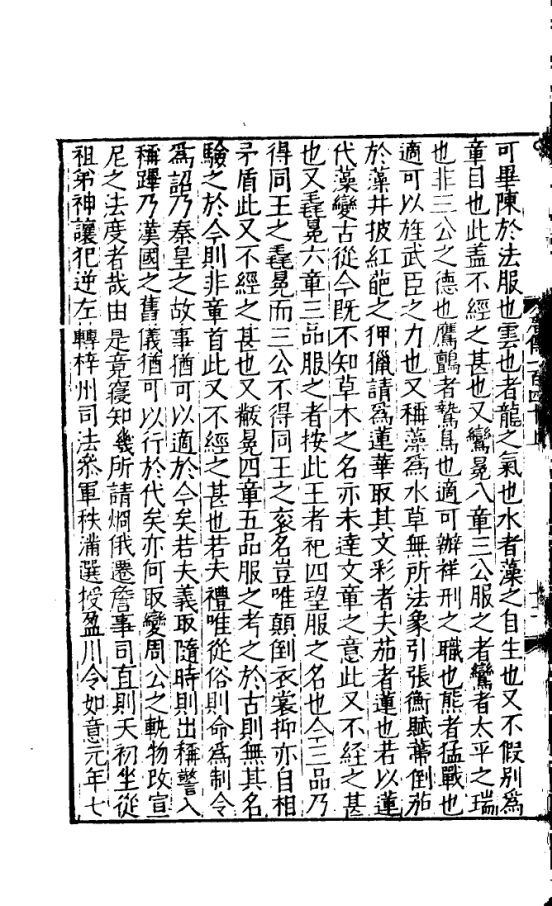 可畢陳於法服也雲也者龍之氣也水者藻之自生也又不假別爲
章目也此蓋不經之甚也又鸞冕八章三公服之者鸞者太平之瑞
也非三公之德也鷹鸇者鷙鳥也適可辦祥刑之職也熊者猛戰也
適可以旌武臣之力也又稱藻爲水草無所法象引張衡賦蔕倒茄
於藻井披紅葩之狎獵請爲蓮華取其文彩者夫茄者蓮也若以蓮
代藻變古從今既不知草木之名亦未達文章之意此又不經之甚
也又毳冕六章三品服之者按此王者祀四望服之名也今三品乃
得同王之毳冕而三公不得同王之衮名豈唯顛倒衣裳抑亦自相
矛盾此又不經之甚也又黻冕四章五品服之考之於古則無其名
驗之於今則非章首此又不經之甚也若夫禮唯從俗則命爲制令
爲詔乃秦皇之故事猶可以適於今矣若夫義取隨時則出稱警入
稱蹕乃漢國之舊儀猶可以行於代矣亦何取變周公之軌物改宣
尼之法度者哉由是竟寢知幾所請烱俄遷詹事司直則天初坐從
祖弟神讓犯逆左轉梓州司法參軍秩滿選授盈川令如意元年七